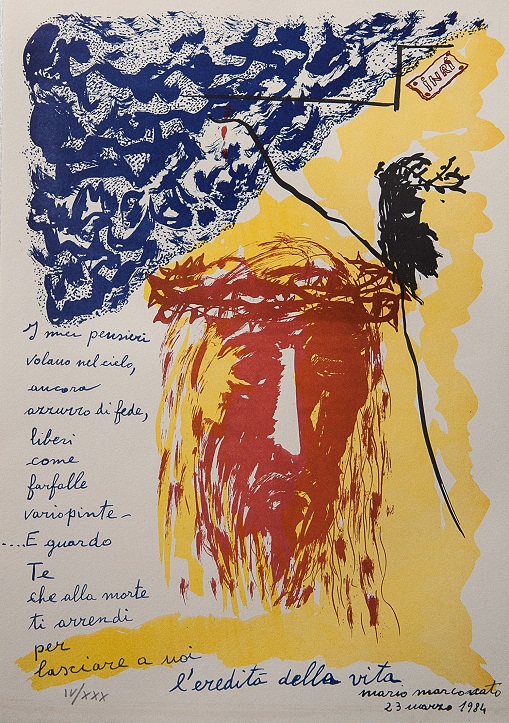 INRI
I miei pensieri
volano nel cielo,
ancora
azzurro di fede,
liberi
come
farfalle
variopinte –
....E guardo
Te
che alla morte
ti arrendi
per
lasciare a noi
l'eredità della vita
IV/XXX
mario marconato
23 marzo 1984